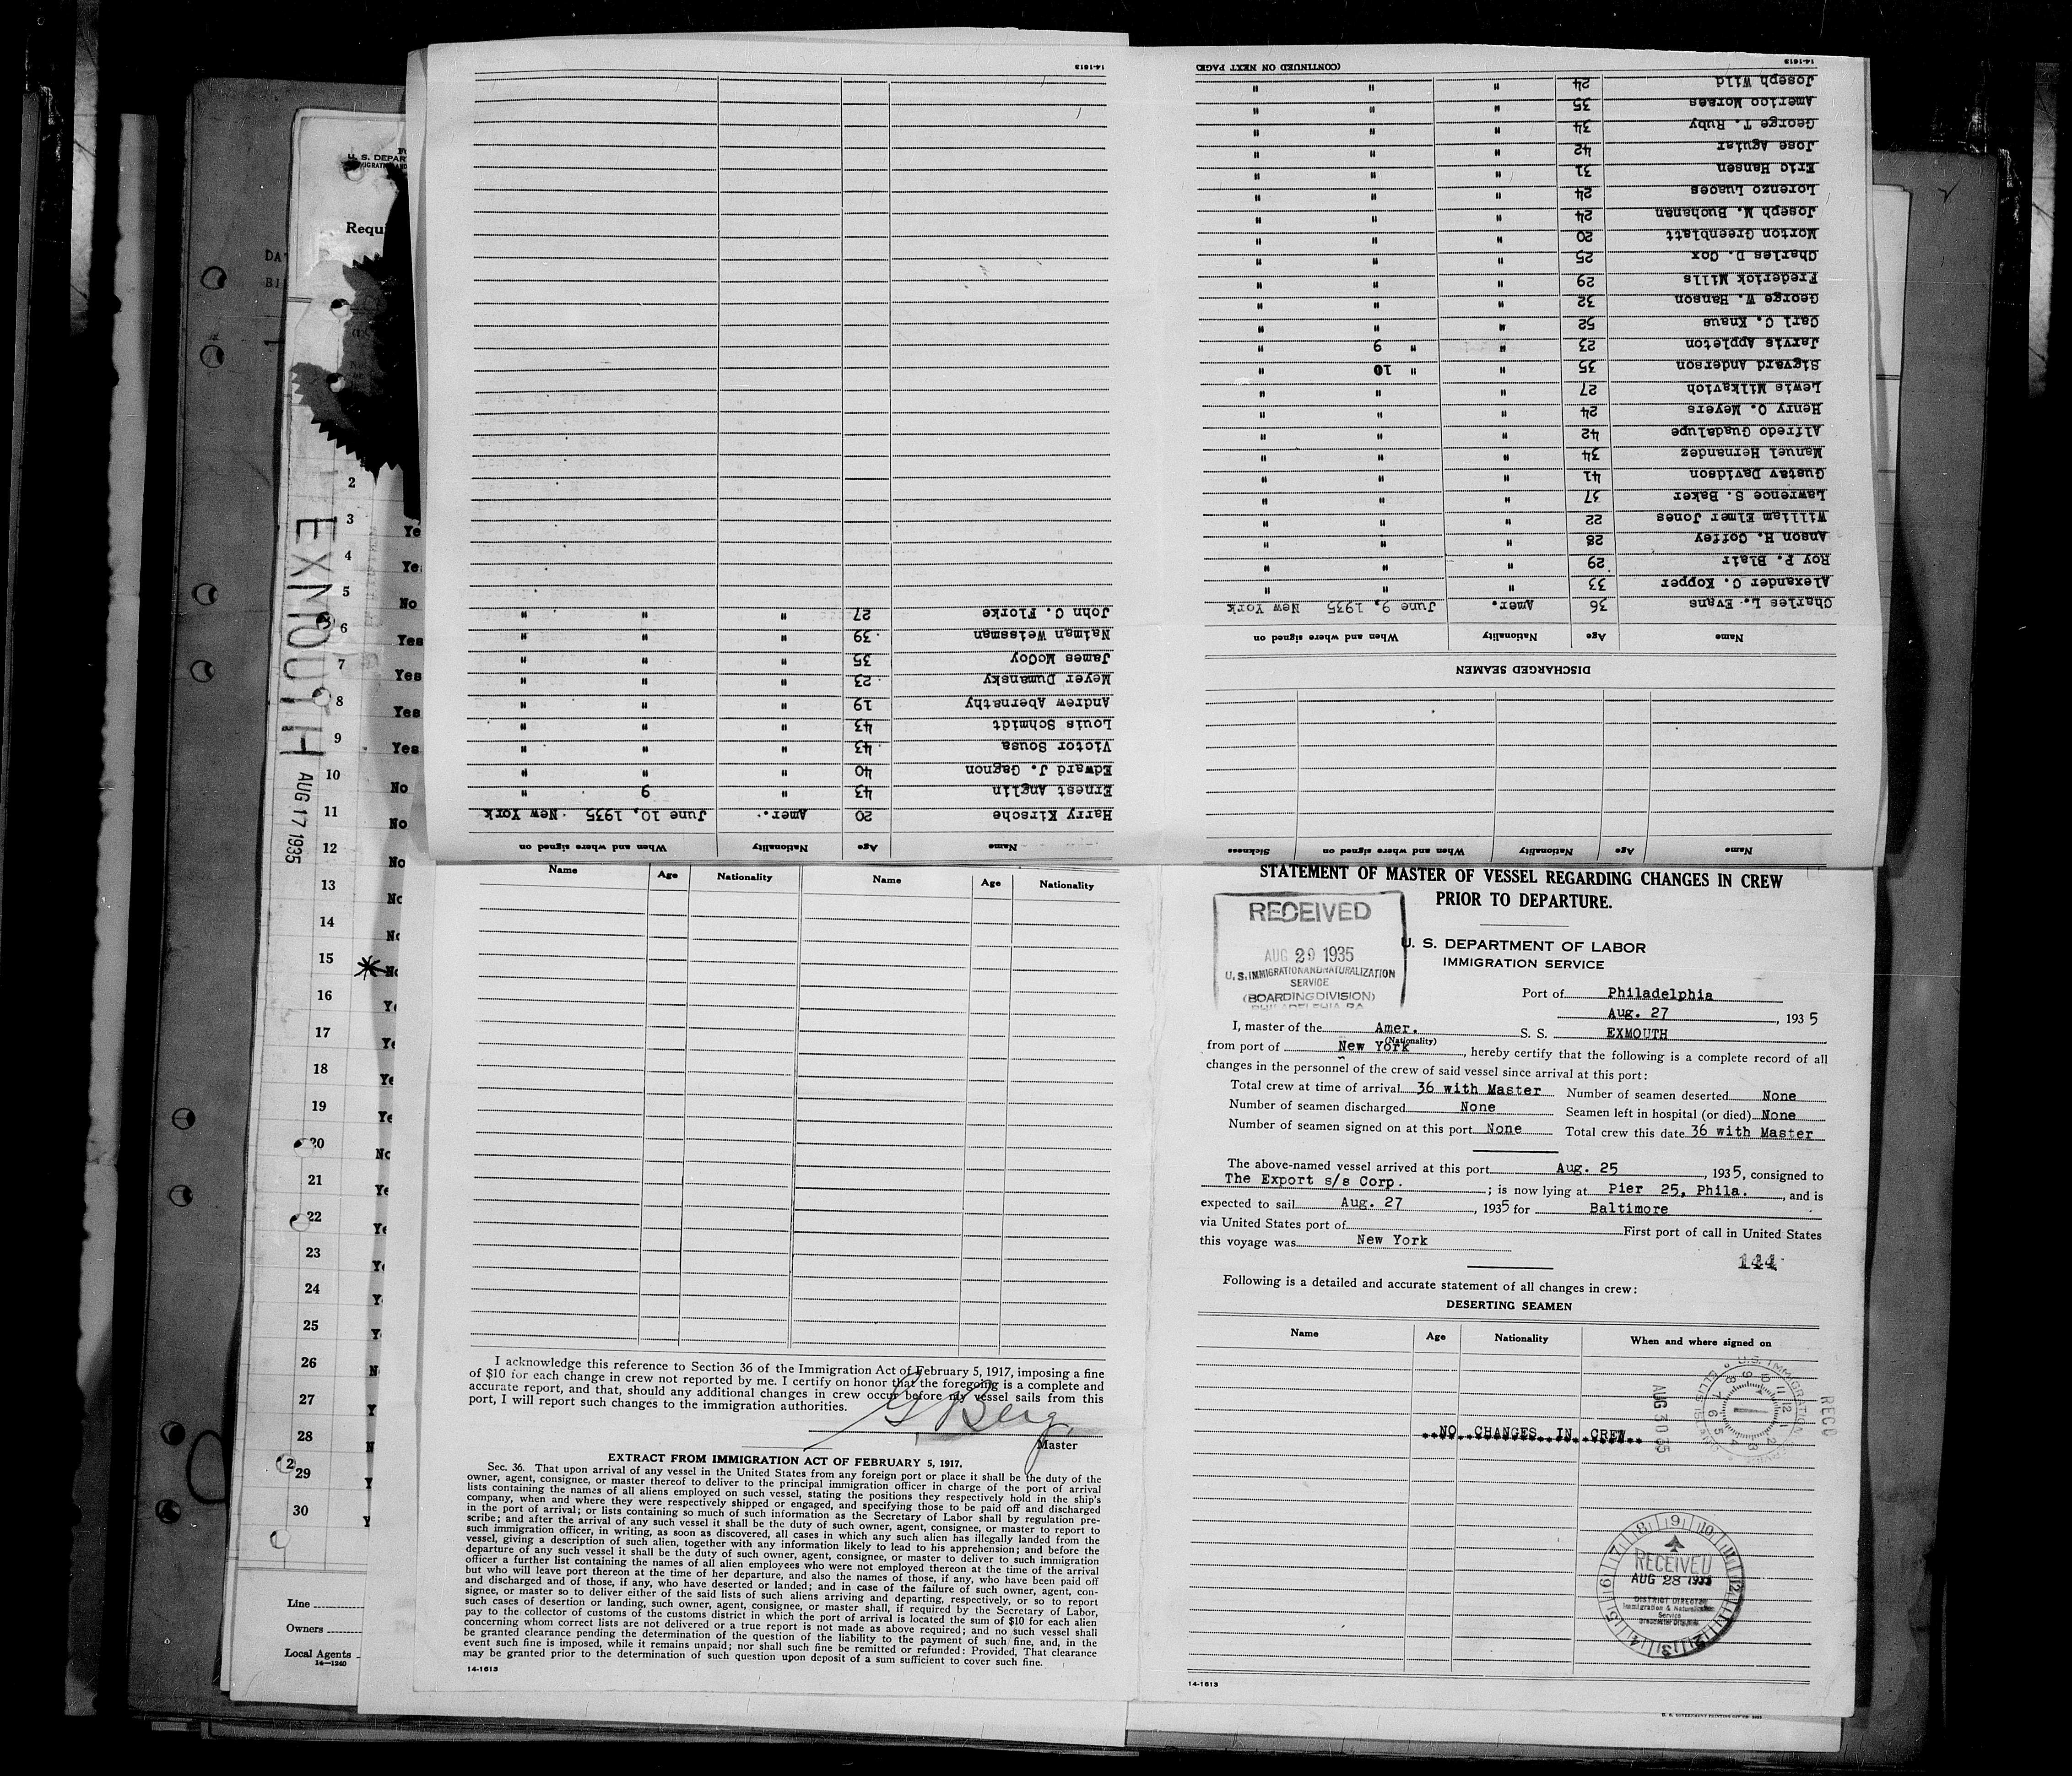 STATEMENT OF MASTER OF VESSEL REGARDING CHANGES IN CREW
PRIOR TO DEPARTURE.
U. S. DEPARTMENT OF LABOR
IMMIGRATION SERVICE
RECEIVED
AUG 29 1935
U.S. IMMIGRATION AND NATURALIZATION
SERVICE
(BOARDING DIVISION)
PHILADELPHIA PA
Port of Philadelphia
Aug. 27, 1935
I, master of the Amer. S. S. EXMOUTH
(Nationality)
from port of New York, hereby certify that the following is a complete record of all
changes in the personnel of the crew of said vessel since arrival at this port:
Total crew at time of arrival 36 with Master Number of seamen deserted None
Number of seamen discharged None Seamen left in hospital (or died) None
Number of seamen signed on at this port None Total crew this date 36 with Master
The above-named vessel arrived at this port Aug. 25, 1935, consigned to
The Export s/s Corp.; is now lying at Pier 25, Phila., and is
expected to sail Aug. 27, 1935 for Baltimore
via United States port of First port of call in United States
this voyage was New York
144
Following is a detailed and accurate statement of all changes in crew:
DESERTING SEAMEN
Name Age Nationality When and where signed on
NO CHANGES IN CREW
U.S. IMMIGRATION
REC'D
AUG 30 35
RECEIVED
AUG 28 1935
DISTRICT DIRECTOR
Immigration & Naturalization
Service
14-1613
Name Age Nationality When and where signed on Sickness
DISCHARGED SEAMEN
Name Age Nationality When and where signed on
Charles L. Evans 36 Amer. June 9, 1935 New York
Alexander C. Kopper 33 " " "
Roy P. Blair 29 " " "
Anson H. Coffey 28 " " "
William Elmer Jones 22 " " "
Lawrence S. Baker 37 " " "
Gustav Davidson 41 " " "
Manuel Hernandez 34 " " "
Alfredo Guadalupe 42 " " "
Henry O. Meyers 24 " " "
Lewis Milkavich 27 " " "
Sigvard Anderson 35 " " 10 "
Jarvis Appleton 23 " " 9 "
Carl C. Knaus 52 " " "
George W. Hanson 32 " " "
Frederick Mills 29 " " "
Charles D. Cox 25 " " "
Morton Greenblatt 20 " " "
Joseph M. Buchanan 24 " " "
Lorenzo Luaces 24 " " "
Eric Hansen 31 " " "
Jose Aguiar 42 " " "
George T. Ruby 34 " " "
Americo Moraes 35 " " "
Joseph Wild 24 " " "
14-1613 (CONTINUED ON NEXT PAGE)
Name Age Nationality When and where signed on
Harry Kirsche 20 Amer. June 10, 1935 New York
Ernest Anglin 43 " 9 "
Edward J. Gagnon 40 " " "
Victor Sousa 43 " " "
Louis Schmidt 43 " " "
Andrew Abernathy 19 " " "
Meyer Dumansky 23 " " "
James McCoy 35 " " "
Naiman Weissman 39 " " "
John C. Florke 27 " " "
14-1613
Name Age Nationality Name Age Nationality
I acknowledge this reference to Section 36 of the Immigration Act of February 5, 1917, imposing a fine
of $10 for each change in crew not reported by me. I certify on honor that the foregoing is a complete and
accurate report, and that, should any additional changes in crew occur before my vessel sails from this
port, I will report such changes to the immigration authorities.
G Berg
Master
EXTRACT FROM IMMIGRATION ACT OF FEBRUARY 5, 1917.
Sec. 36. That upon arrival of any vessel in the United States from any foreign port or place it shall be the duty of the
owner, agent, consignee, or master thereof to deliver to the principal immigration officer in charge of the port of arrival
lists containing the names of all aliens employed on such vessel, stating the positions they respectively hold in the ship's
company, when and where they were respectively shipped or engaged, and specifying those to be paid off and discharged
in the port of arrival; or lists containing so much of such information as the Secretary of Labor shall by regulation pre-
scribe; and after the arrival of any such vessel it shall be the duty of such owner, agent, consignee, or master to report to
such immigration officer, in writing, as soon as discovered, all cases in which any such alien has illegally landed from the
vessel, giving a description of such alien, together with any information likely to lead to his apprehension; and before the
departure of any such vessel it shall be the duty of such owner, agent, consignee, or master to deliver to such immigration
officer a further list containing the names of all alien employees who were not employed thereon at the time of the arrival
but who will leave port thereon at the time of her departure, and also the names of those, if any, who have been paid off
and discharged and of those, if any, who have deserted or landed; and in case of the failure of such owner, agent, con-
signee, or master so to deliver either of the said lists of such aliens arriving and departing, respectively, or so to report
such cases of desertion or landing, such owner, agent, consignee, or master shall, if required by the Secretary of Labor,
pay to the collector of customs of the customs district in which the port of arrival is located the sum of $10 for each alien
concerning whom correct lists are not delivered or a true report is not made as above required; and no such vessel shall
be granted clearance pending the determination of the question of the liability to the payment of such fine, and, in the
event such fine is imposed, while it remains unpaid; nor shall such fine be remitted or refunded: Provided, That clearance
may be granted prior to the determination of such question upon deposit of a sum sufficient to cover such fine.
14-1613
U. S. DEPAR
Requi
EXMOUTH
AUG 17 1935
2
3 Ye
4 Ye
5 No
6 Yes
7 Yes
8 Yes
9 Yes
10 No
11 No
12 No
13 No
14 No
15 No
16 Ye
17 Ye
18 Ye
19 Ye
20 No
21 Ye
22 Ye
23 Ye
24 Y
25 Y
26 N
27 Y
28 N
29 Y
30 Y
Line
Owners
Local Agents
14-1240